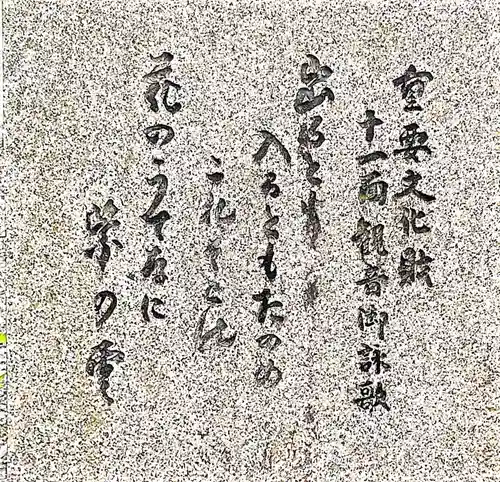 重要文化財
十一面観音御詠歌
出ると
入るともたのめ
これそこの
花のうてなに
紫の雲